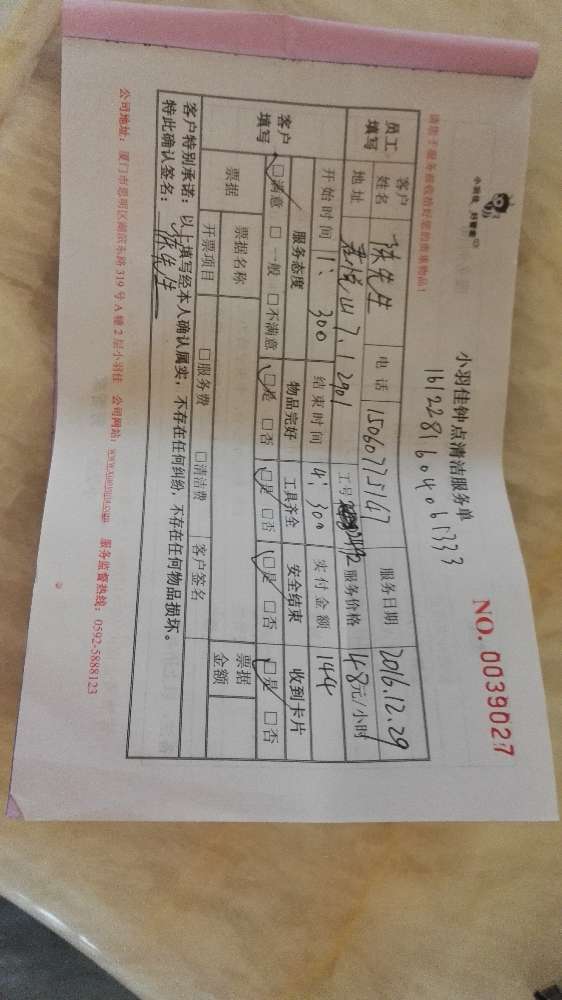 小羽佳 好管家
小羽佳钟点清洁服务单
NO. 0039027
161228160406171333
员工填写 客户姓名 陈先生 电话 15060775147 服务日期 2016.12.29
地址 7.1 2901 工号 服务价格 48元/小时
开始时间 1:300 结束时间 4:300 实付金额 144
客户填写 服务态度 物品完好 工具齐全 安全结束 收到卡片
☑满意 □一般 □不满意 ☑是 □否 ☑是 □否 ☑是 □否 ☑是 □否
票据 票据名称 票据金额
开票项目 □服务费 □清洁费 客户签名
客户特别承诺：以上填写经本人确认属实，不存在任何纠纷，不存在任何物品损坏。
特此确认签名：陈先生
公司地址：厦门市思明区湖滨东路319号A幢2层小羽佳 公司网站：www.xiaoyujia.com 服务监督热线：0592-5888123